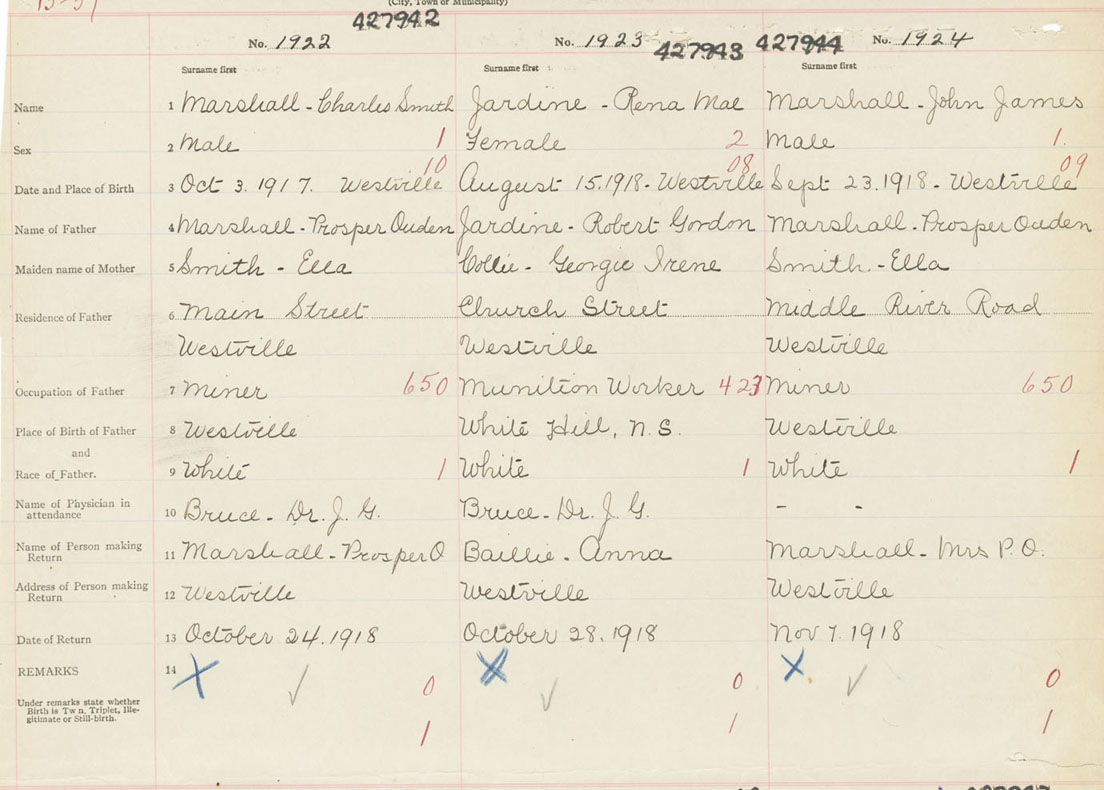 13-57
(City, Town or Municipality)
427942
No. 1922 No. 1923 427943 427944 No. 1924
Surname first Surname first Surname first
Name 1 Marshall - Charles Smith Jardine - Rena Mae Marshall - John James
Sex 2 Male 1 Female 2 Male 1.
10 08 09
Date and Place of Birth 3 Oct 3. 1917. Westville August 15.1918 - Westville Sept 23.1918 - Westville
Name of Father 4 Marshall - Prosper Ouden Jardine - Robert Gordon Marshall - Prosper Ouden
Maiden name of Mother 5 Smith - Ella Collie - Georgie Irene Smith - Ella
Residence of Father 6 Main Street Church Street Middle River Road
Westville Westville Westville
Occupation of Father 7 Miner 650 Munition Worker 423 Miner 650
Place of Birth of Father 8 Westville White Hill, N.S. Westville
and
Race of Father. 9 White 1 White 1 White 1
Name of Physician in
attendance 10 Bruce - Dr. J. G. Bruce - Dr. J. G. - -
Name of Person making
Return 11 Marshall - Prosper O Baillie - Anna Marshall - Mrs P. O.
Address of Person making
Return 12 Westville Westville Westville
Date of Return 13 October 24.1918 October 28.1918 Nov 7.1918
REMARKS 14 X X X
0 0 0
Under remarks state whether
Birth is Tw n, Triplet, Ille-
gitimate or Still-birth.
1 1 1